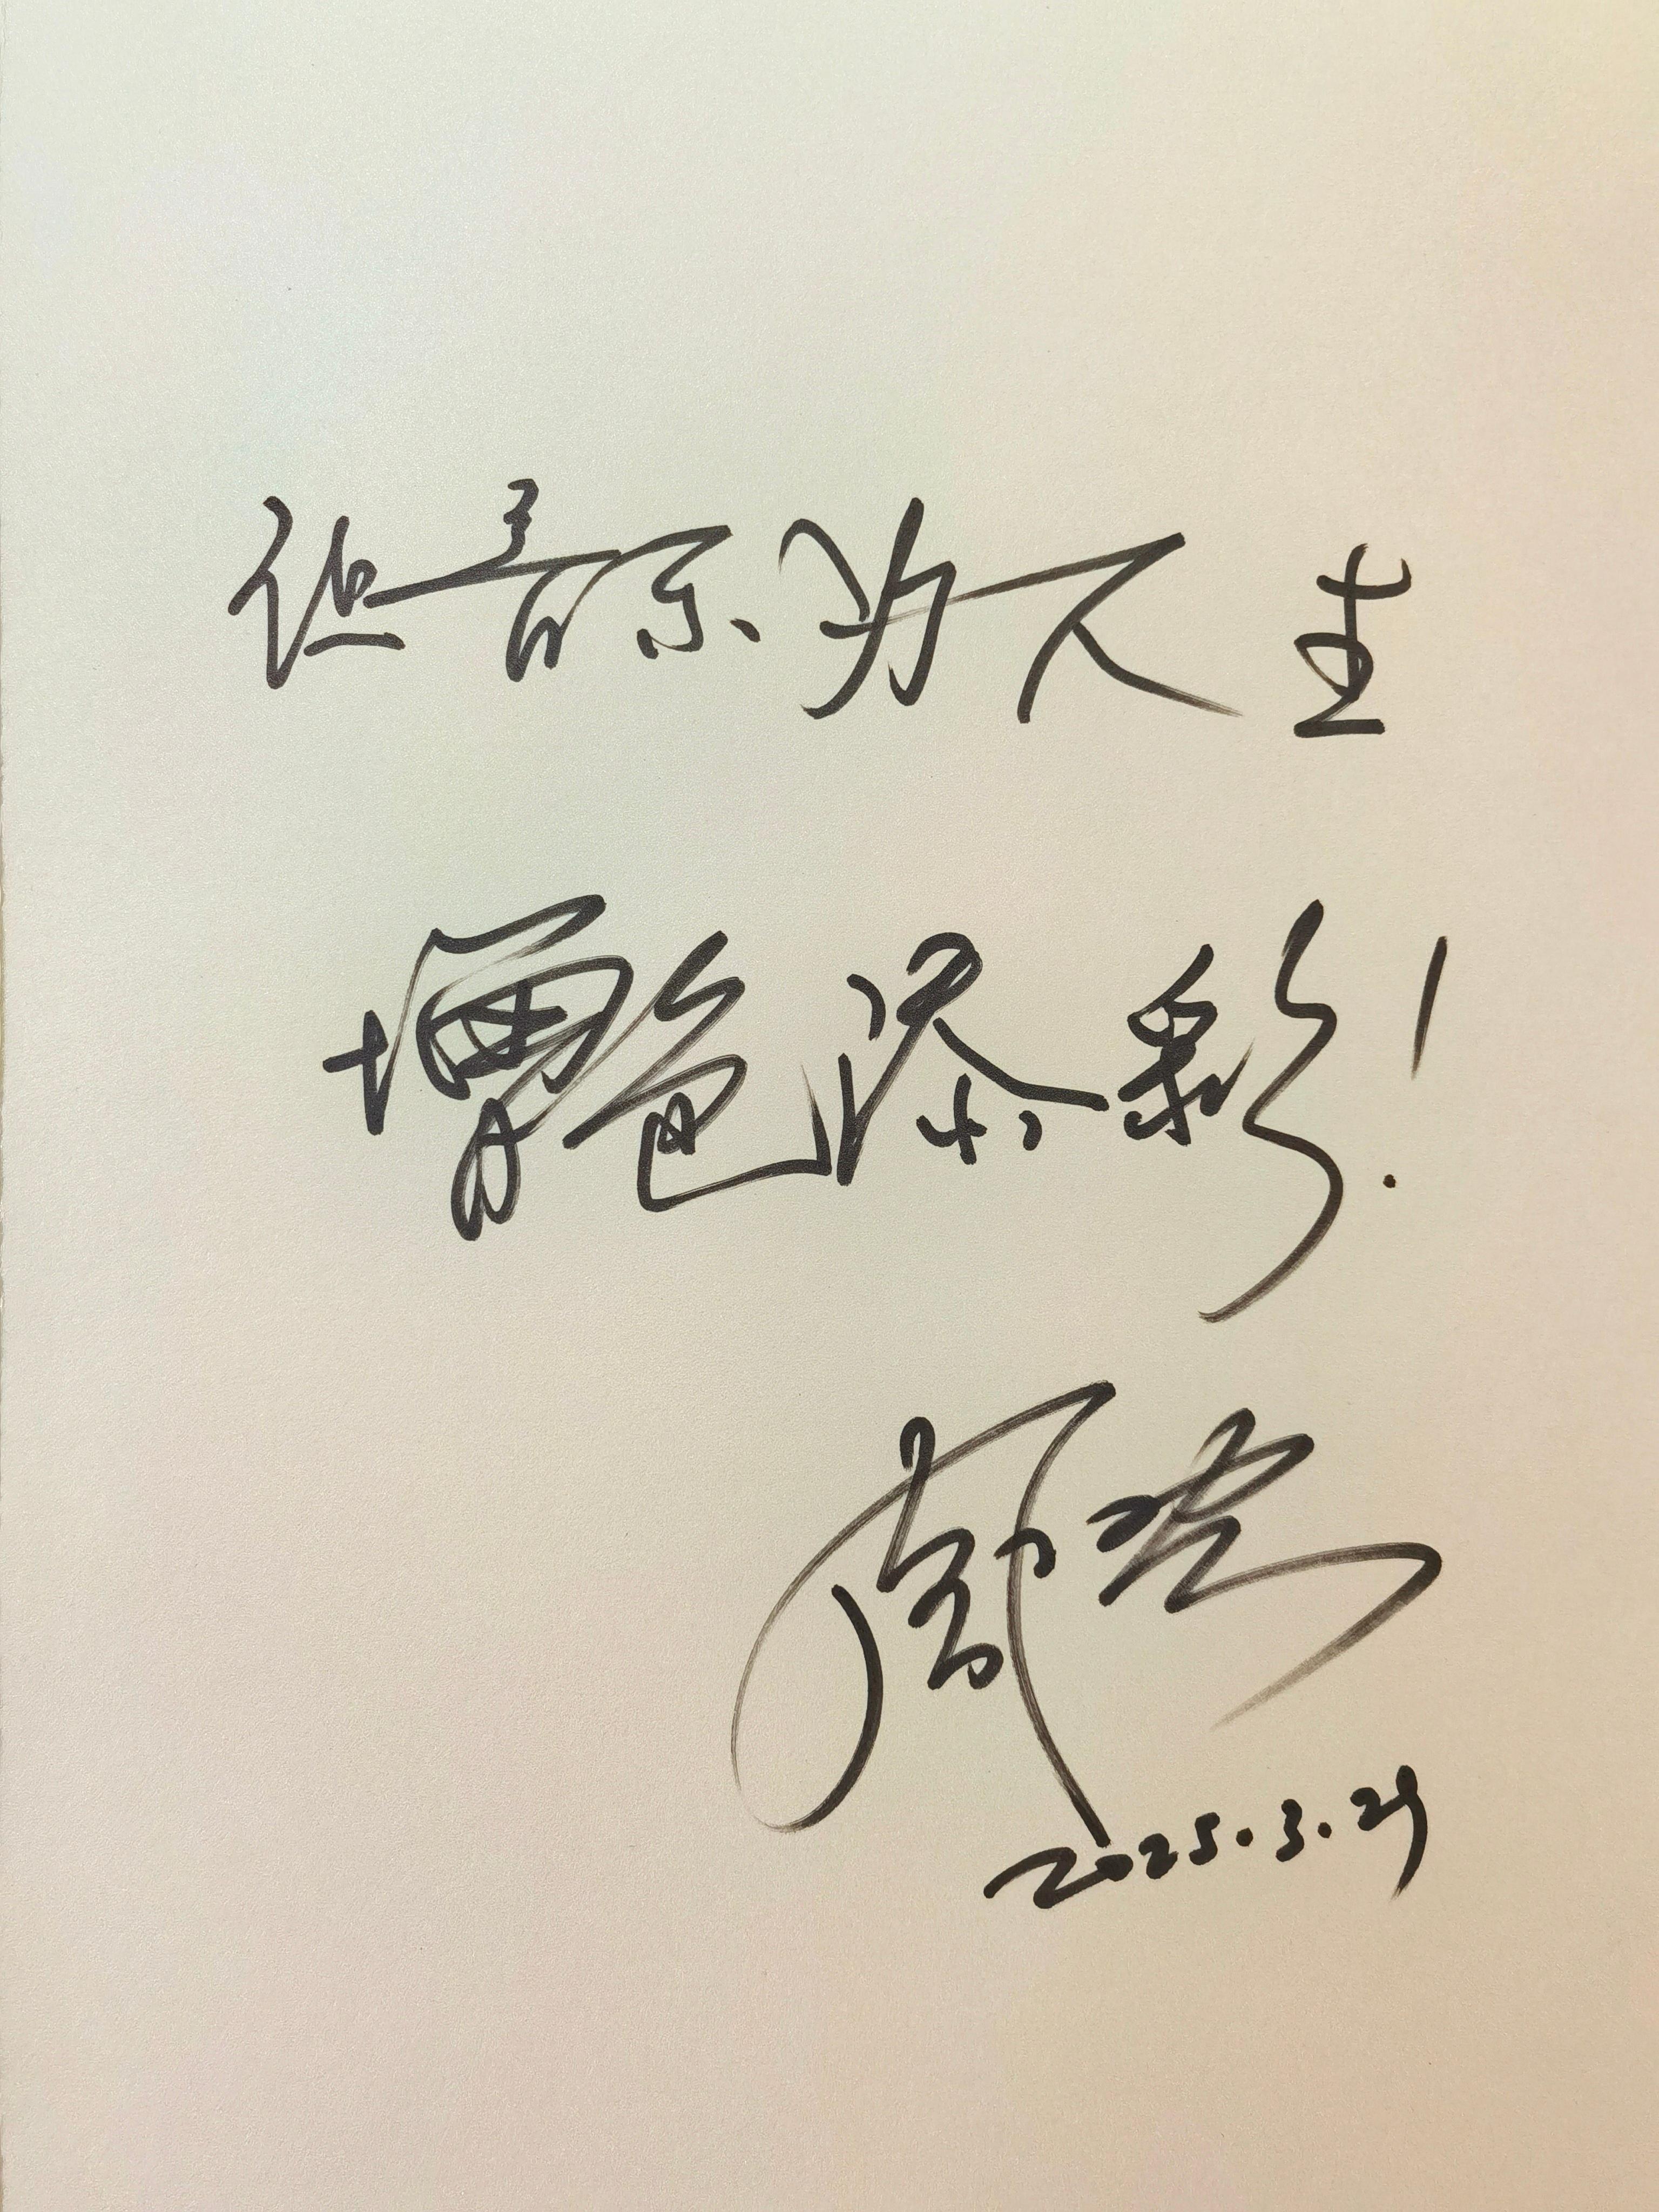 让音乐为人生
增色添彩!
2025.3.29